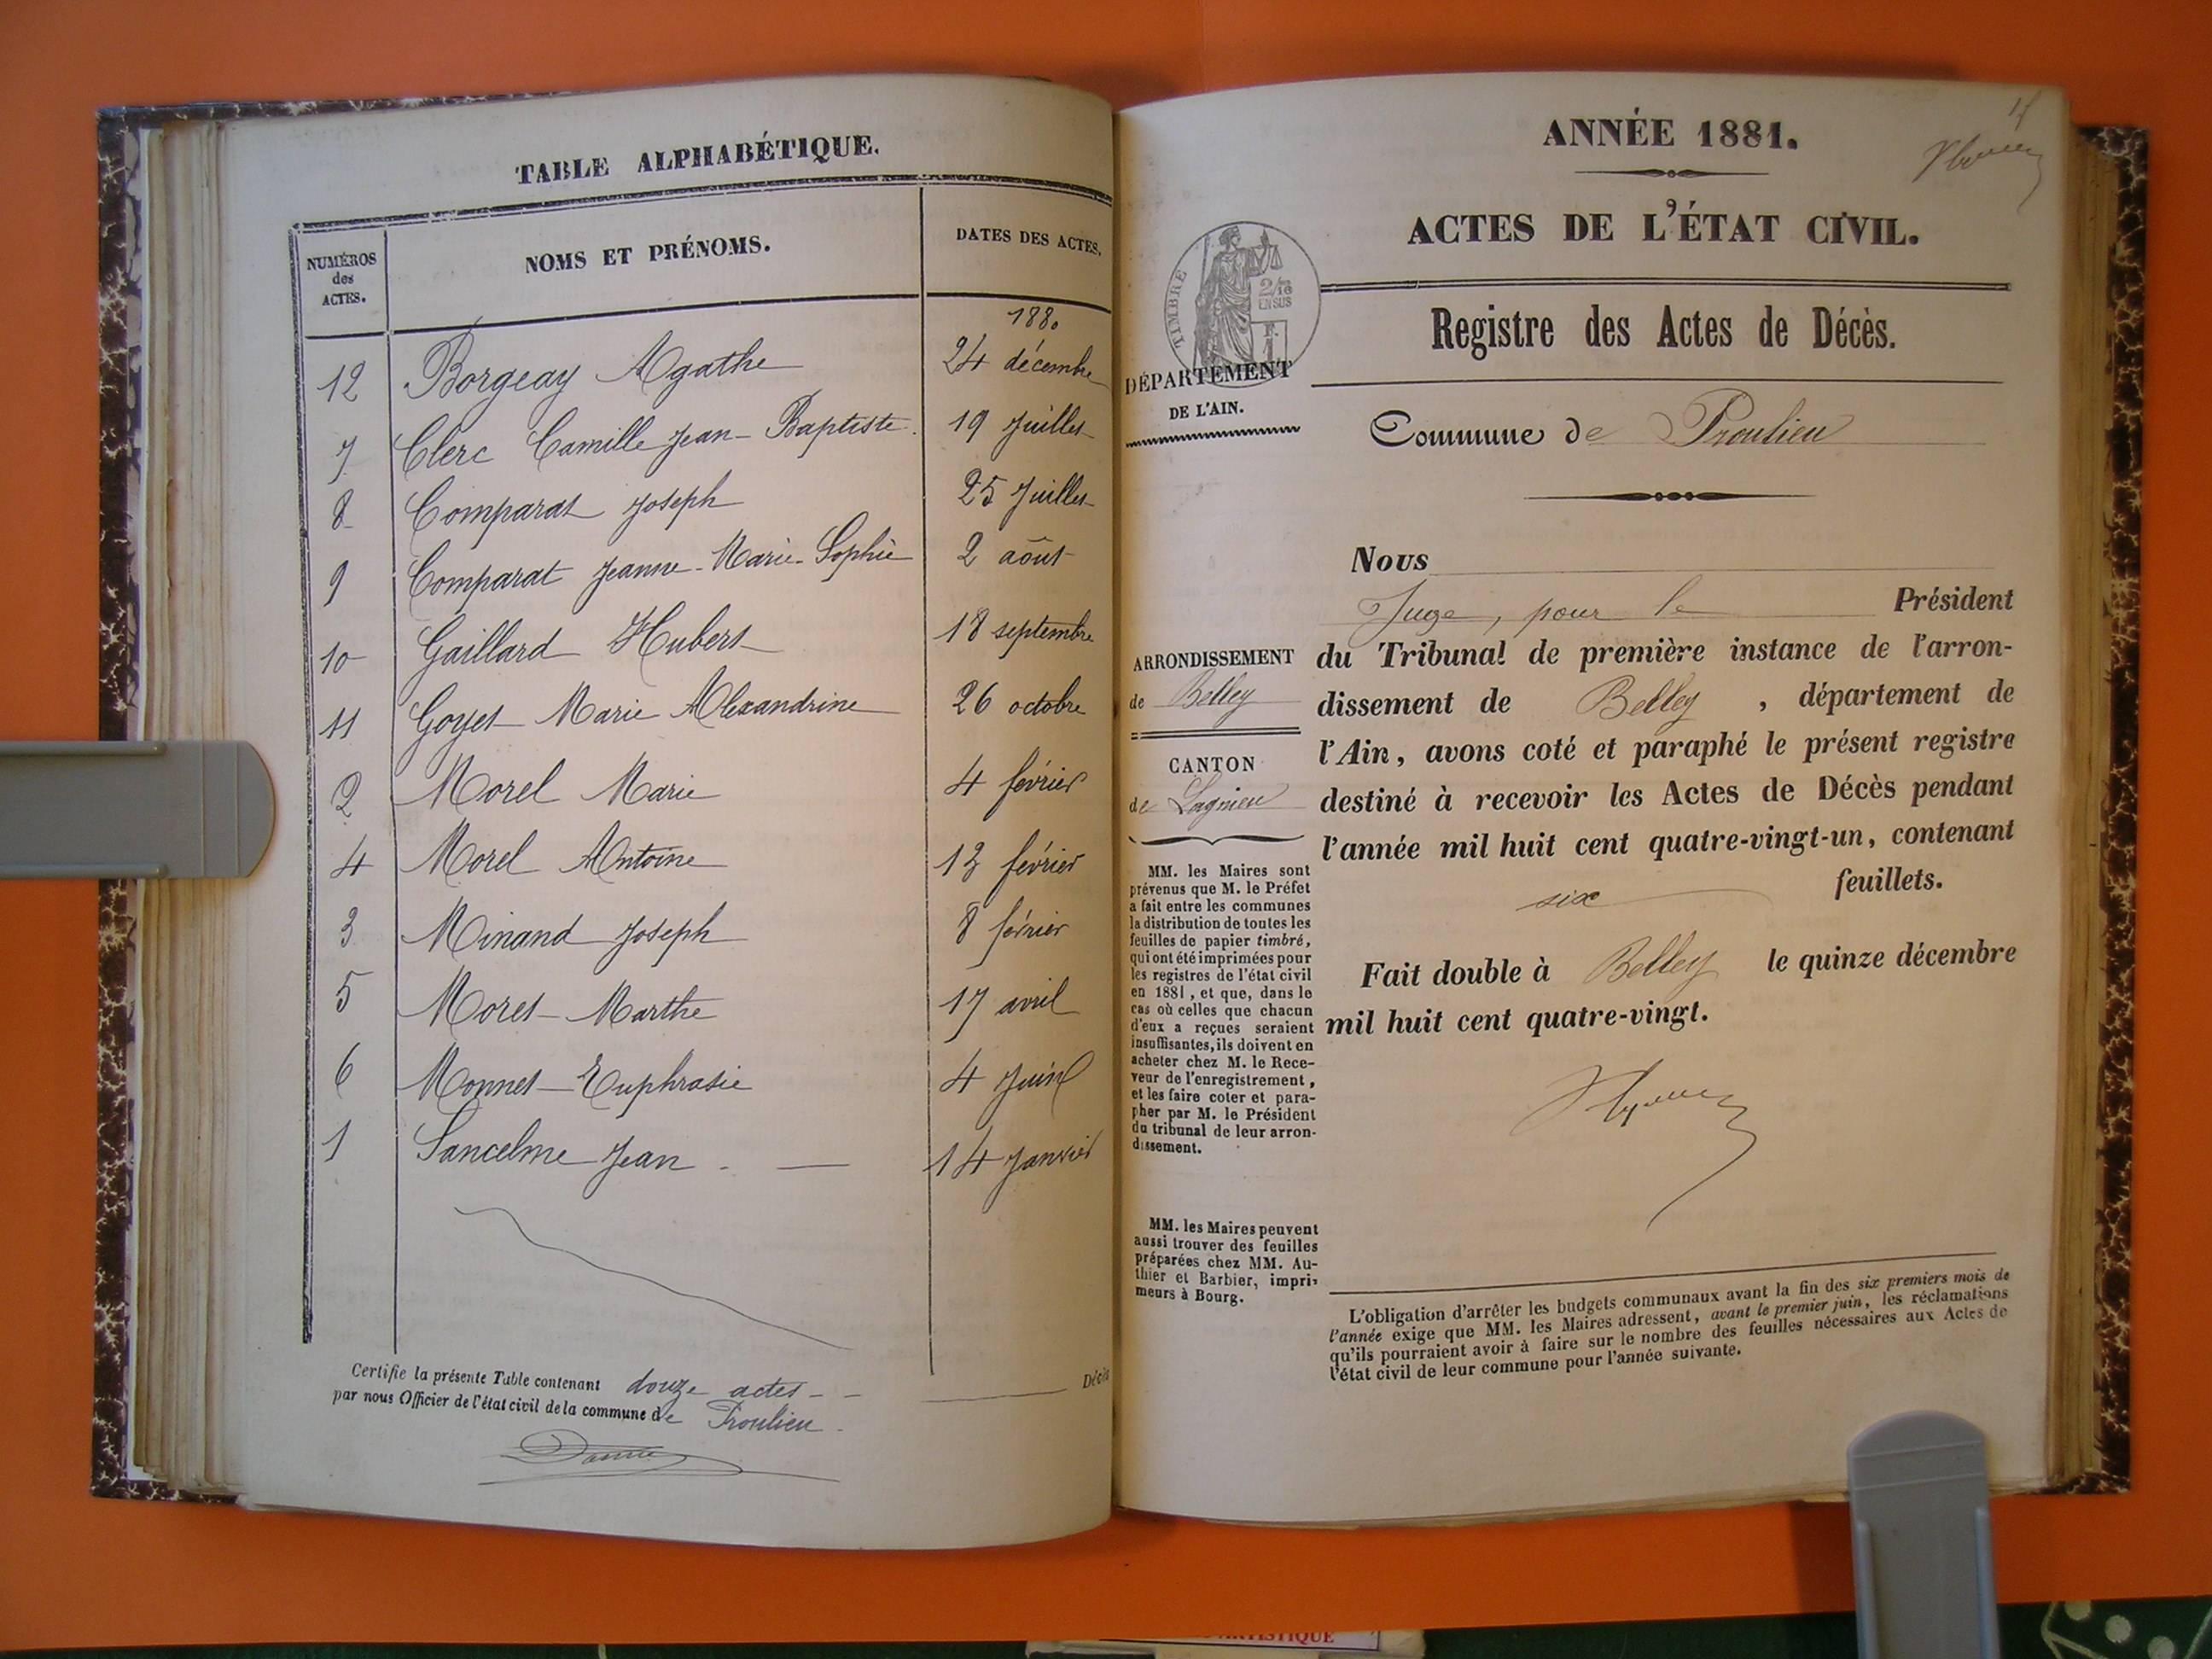 TABLE ALPHABÉTIQUE.
NUMÉROS des ACTES. NOMS ET PRÉNOMS. DATES DES ACTES.
1880
12 Borgeay Agathe 24 décembre
7 Clerc Camille Jean-Baptiste 19 Juillet
8 Comparat Joseph 25 Juillet
9 Comparat Jeanne-Marie-Sophie 2 août
10 Gaillard Hubert 18 septembre
11 Goyet Marie Alexandrine 26 octobre
2 Morel Marie 4 février
4 Morel Antoine 13 février
3 Minand Joseph 8 février
5 Moret Marthe 17 avril
6 Monnet Euphrasie 4 Juin
1 Sancelme Jean 14 Janvier
Certifie la présente Table contenant douze actes Décès
par nous Officier de l'état civil de la commune de Proulieu
ANNÉE 1881.
ACTES DE L'ÉTAT CIVIL.
TIMBRE
2/10
EN SUS
Registre des Actes de Décès.
DÉPARTEMENT
DE L'AIN.
Commune de Proulieu
ARRONDISSEMENT
de Belley
CANTON
de Lagnieu
MM. les Maires sont
prévenus que M. le Préfet
a fait entre les communes
la distribution de toutes les
feuilles de papier timbré,
qui ont été imprimées pour
les registres de l'état civil
en 1881, et que, dans le
cas où celles que chacun
d'eux a reçues seraient
insuffisantes, ils doivent en
acheter chez M. le Rece-
veur de l'enregistrement,
et les faire coter et para-
pher par M. le Président
du tribunal de leur arron-
dissement.
MM. les Maires peuvent
aussi trouver des feuilles
préparées chez MM. Au-
thier et Barbier, impri-
meurs à Bourg.
Nous
Juge, pour le Président
du Tribunal de première instance de l'arron-
dissement de Belley, département de
l'Ain, avons coté et paraphé le présent registre
destiné à recevoir les Actes de Décès pendant
l'année mil huit cent quatre-vingt-un, contenant
six feuillets.
Fait double à Belley le quinze décembre
mil huit cent quatre-vingt.
L'obligation d'arrêter les budgets communaux avant la fin des six premiers mois de
l'année exige que MM. les Maires adressent, avant le premier juin, les réclamations
qu'ils pourraient avoir à faire sur le nombre des feuilles nécessaires aux Actes de
l'état civil de leur commune pour l'année suivante.
ARTISTIQUE